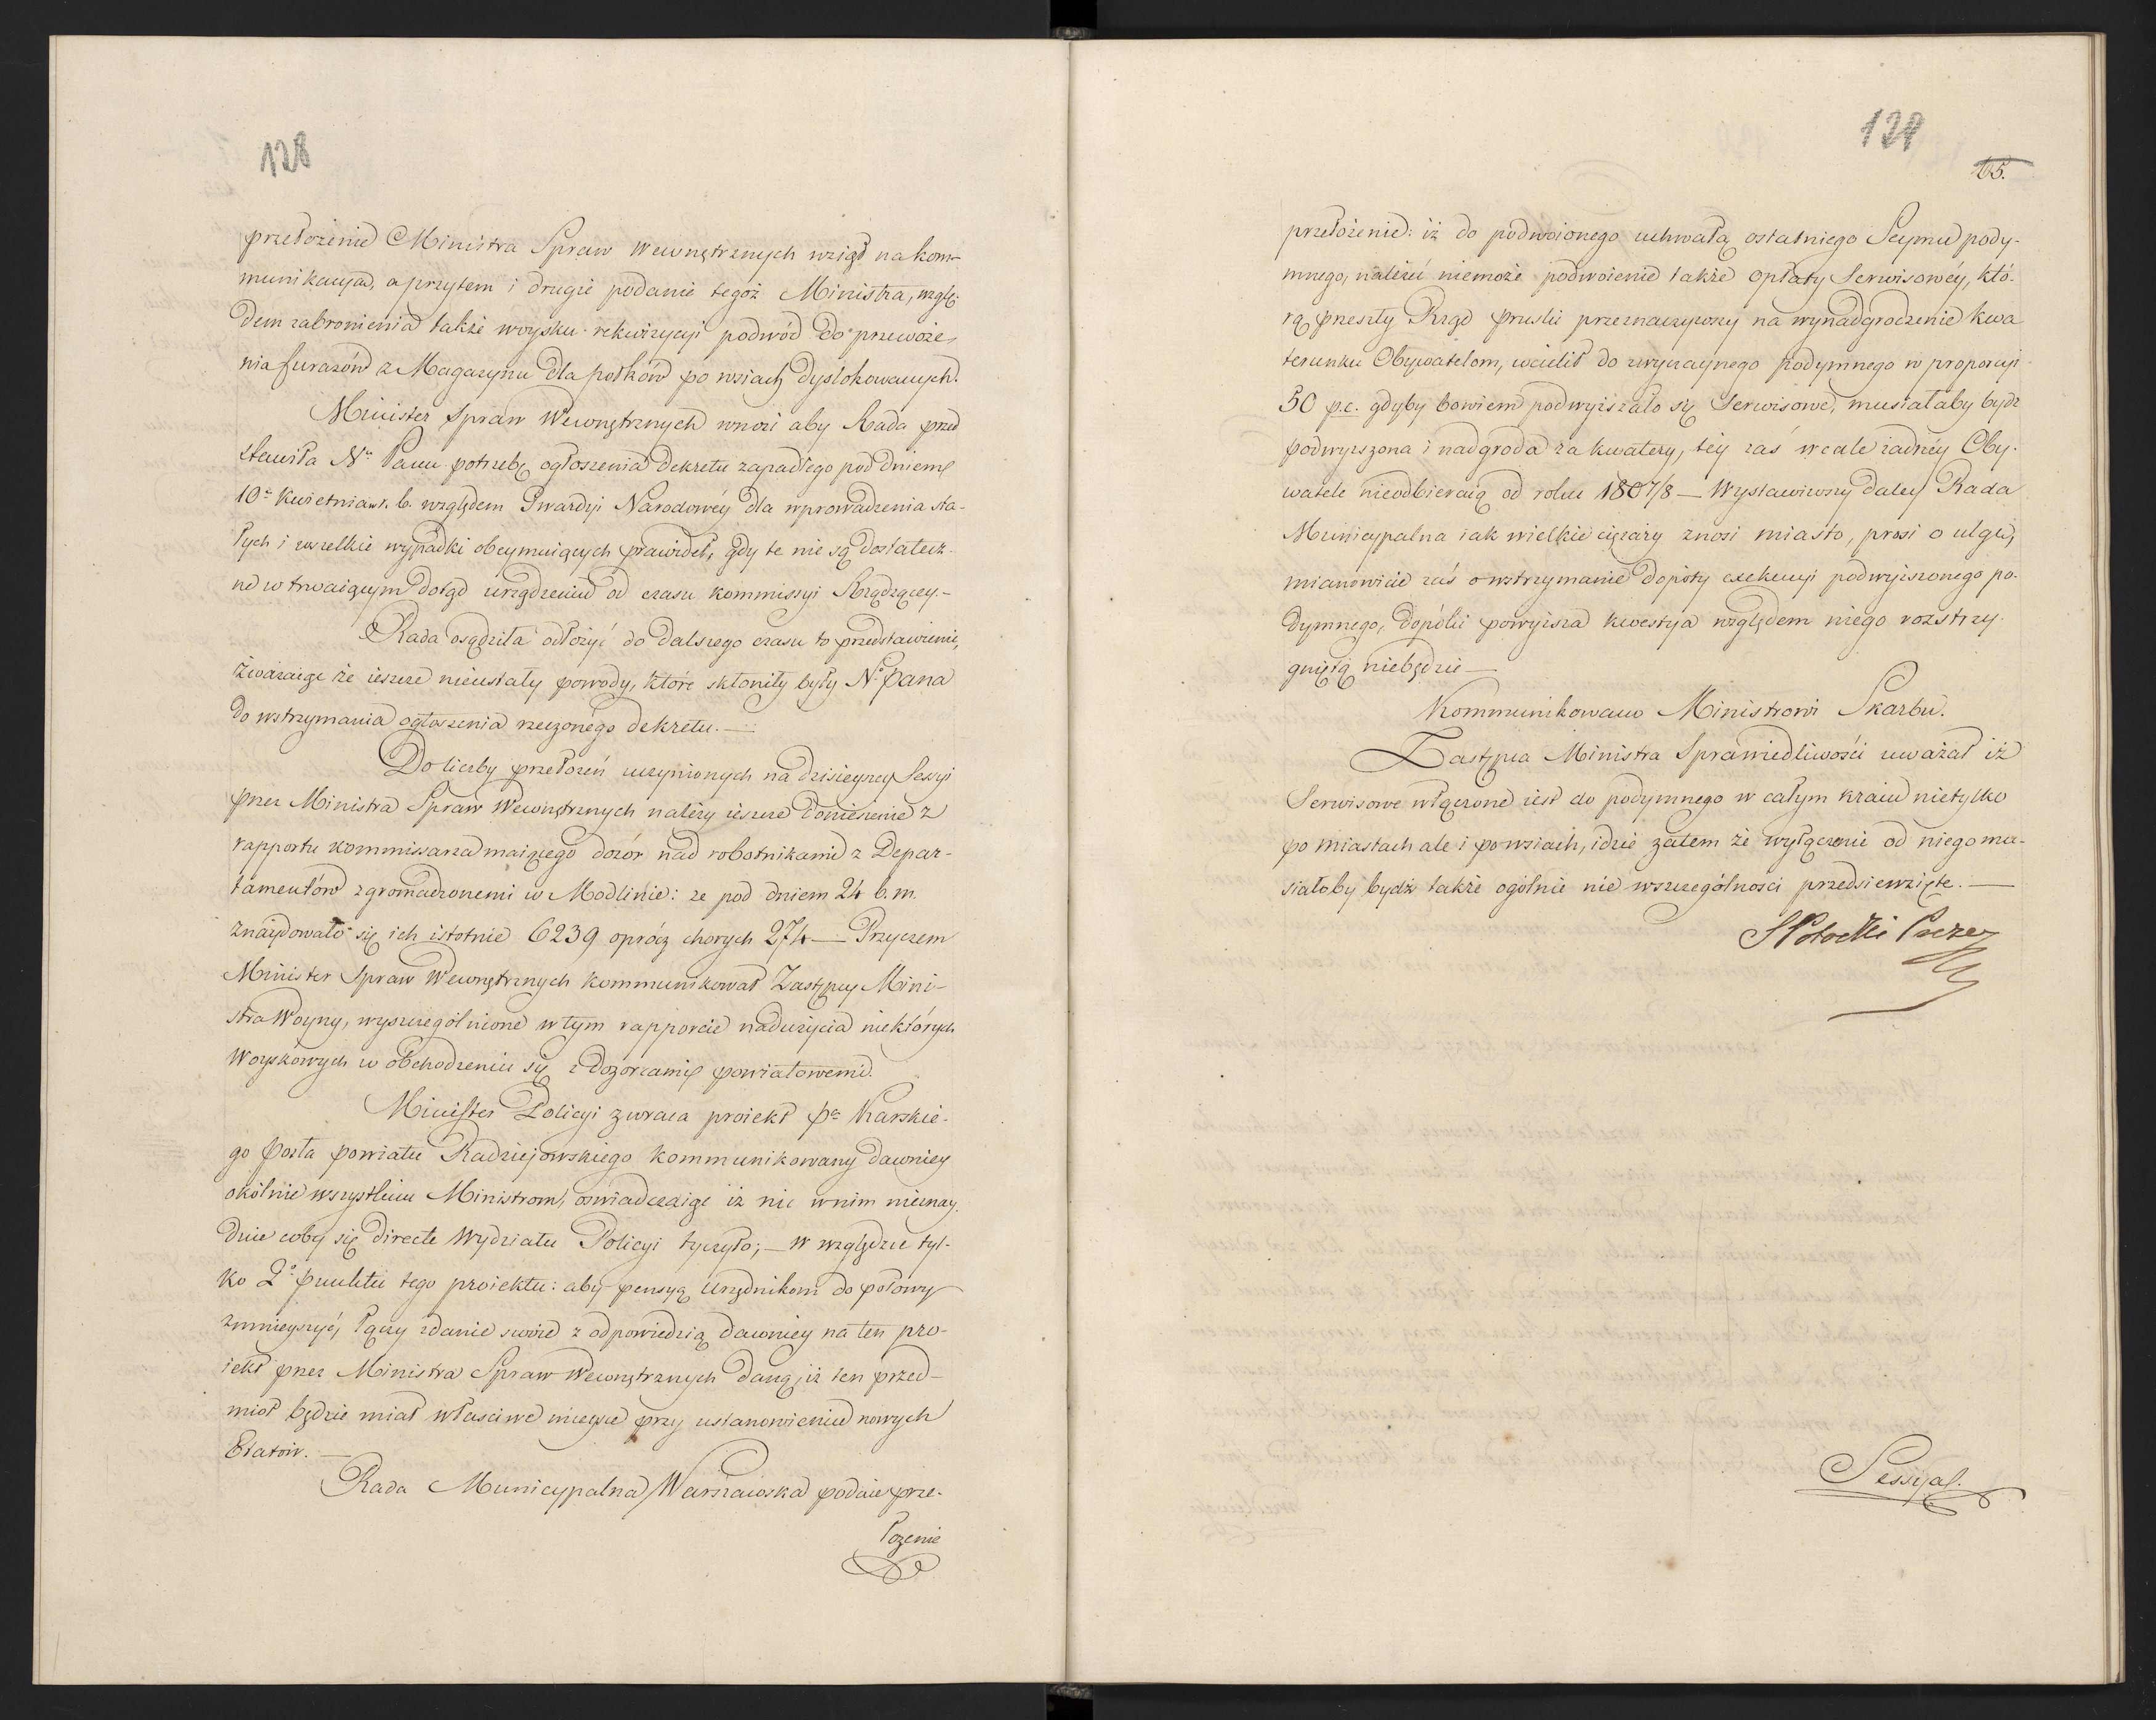 128
przełożenie Ministra Spraw Wewnętrznych wziął na kom-
munikacyą, a przytem i drugie podanie tegoż Ministra, wzglę-
dem zabronienia także woysku rekwizycyi podwód do przewoże-
nia furażów z Magazynu dla połków po wsiach dyslokowanych.
Minister Spraw Wewnętrznych wnosi aby Rada przed
stawiła Nu Panu potrzebę ogłoszenia dekretu zapadłego pod dniem
10o Kwietnia r. b. względem Gwardyi Narodowéy dla wprowadzenia sta-
łych i wszelkie wypadki obeymuiących prawideł, gdy te nie są dostatecz-
ne w trwaiącym dotąd urządzeniu od czasu kommissyi Rządzącey.-
Rada osądziła odłożyć do dalszego czasu to przedstawienie,
zważaiąc że ieszcze nieustały powody, które skłoniły były No Pana
do wstrzymania ogłoszenia rzeczonego dekretu.—
Do liczby przełożeń uczynionych na dzisieyszey Sessyi
przez Ministra Spraw Wewnętrznych należy ieszcze doniesienie z
rapportu kommissarza maiącego dozór nad robotnikami z Depar-
tamentów zgromadzonemi w Modlinie: że pod dniem 24 b. m.
znaydowało się ich istotnie 6239 oprócz chorych 274— Przyczem
Minister Spraw Wewnętrznych kommunikował Zastępcy Mini-
stra Woyny, wyszczególnione w tym rapporcie nadużycia niektórych
Woyskowych w obchodzeniu się z dozorcami powiatowemi.
Minister Policyi zwraca proiekt Pa Karskie-
go Posła powiatu Radziejowskiego kommunikowany dawniey
okólnie wszystkim Ministrom, oświadczaiąc iż nic w nim nieznay-
duie coby się directe Wydziału Policyi tyczyło;— w względzie tyl-
ko 2o punktu tego proiektu: aby pensyą Urzędnikom do połowy
zmnieyszyć, łączy zdanie swóie z odpowiedzią dawniey na ten pro-
iekt przez Ministra Spraw Wewnętrznych daną, iż ten przed-
miot będzie miał właściwe mieysce przy ustanowieniu nowych
Etatów.—
Rada Municypalna Warszawska podaie prze-
łożenie
129
65.
przełożenie: iż do podwoionego uchwałą ostatniego Seymu pody-
mnego, należeć niemoże podwoienie także opłaty Serwisowéy, któ-
rą przeszły Rząd pruski przeznaczywszy na wynadgrodzenie kwa
terunku Obywatelom, wcielił do zwyczaynego podymnego w proporcyi
50 p.c. gdyby bowiem podwyższało się Serwisowe, musiałaby bydź
podwyższona i nadgroda za kwatery, téy zaś wcale żadnéy Oby-
watele nieodbieraią od roku 1807/8— Wystawiwszy daley Rada
Municypalna iak wielkie ciężary znosi miasto, prosi o ulgę,
mianowicie zaś o wstrzymanie dopóty exekucyi podwyższonego po-
dymnego, dopóki powyższa kwestya względem niego rozstrzy-
gniętą niebędzie—
Kommunikowano Ministrowi Skarbu.
Zastępca Ministra Sprawiedliwości uważał iż
Serwisowe włączone iest do podymnego w całym kraiu nietylko
po miastach ale i po wsiach, idzie zatem że wyłączenie od niego mu-
siałoby bydź także ogólnie nie wszczególności przedsiewzięte.—
SPotocki Prezes
Sessya